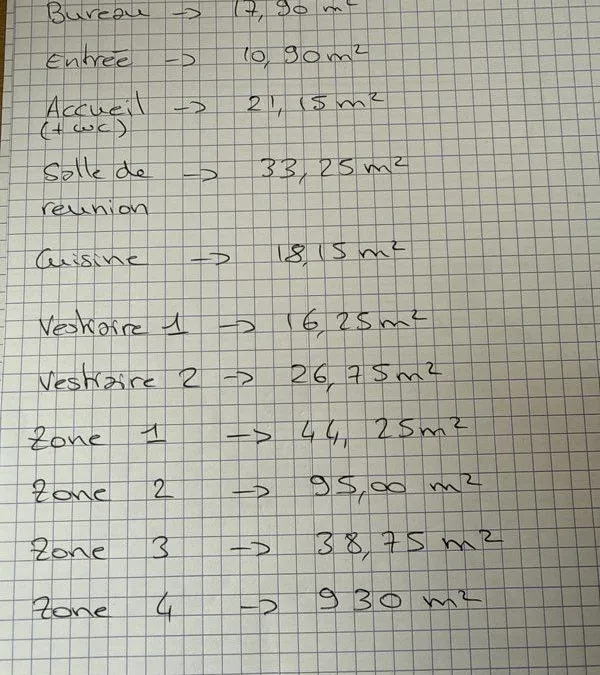 Bureau -> 17,90 m²
Entrée -> 10,90 m²
Accueil -> 21,15 m²
(+ wc)
Salle de -> 33,25 m²
reunion
Cuisine -> 18,15 m²
Vestiaire 1 -> 16,25 m²
Vestiaire 2 -> 26,75 m²
Zone 1 -> 44,25 m²
Zone 2 -> 95,00 m²
Zone 3 -> 38,75 m²
Zone 4 -> 930 m²